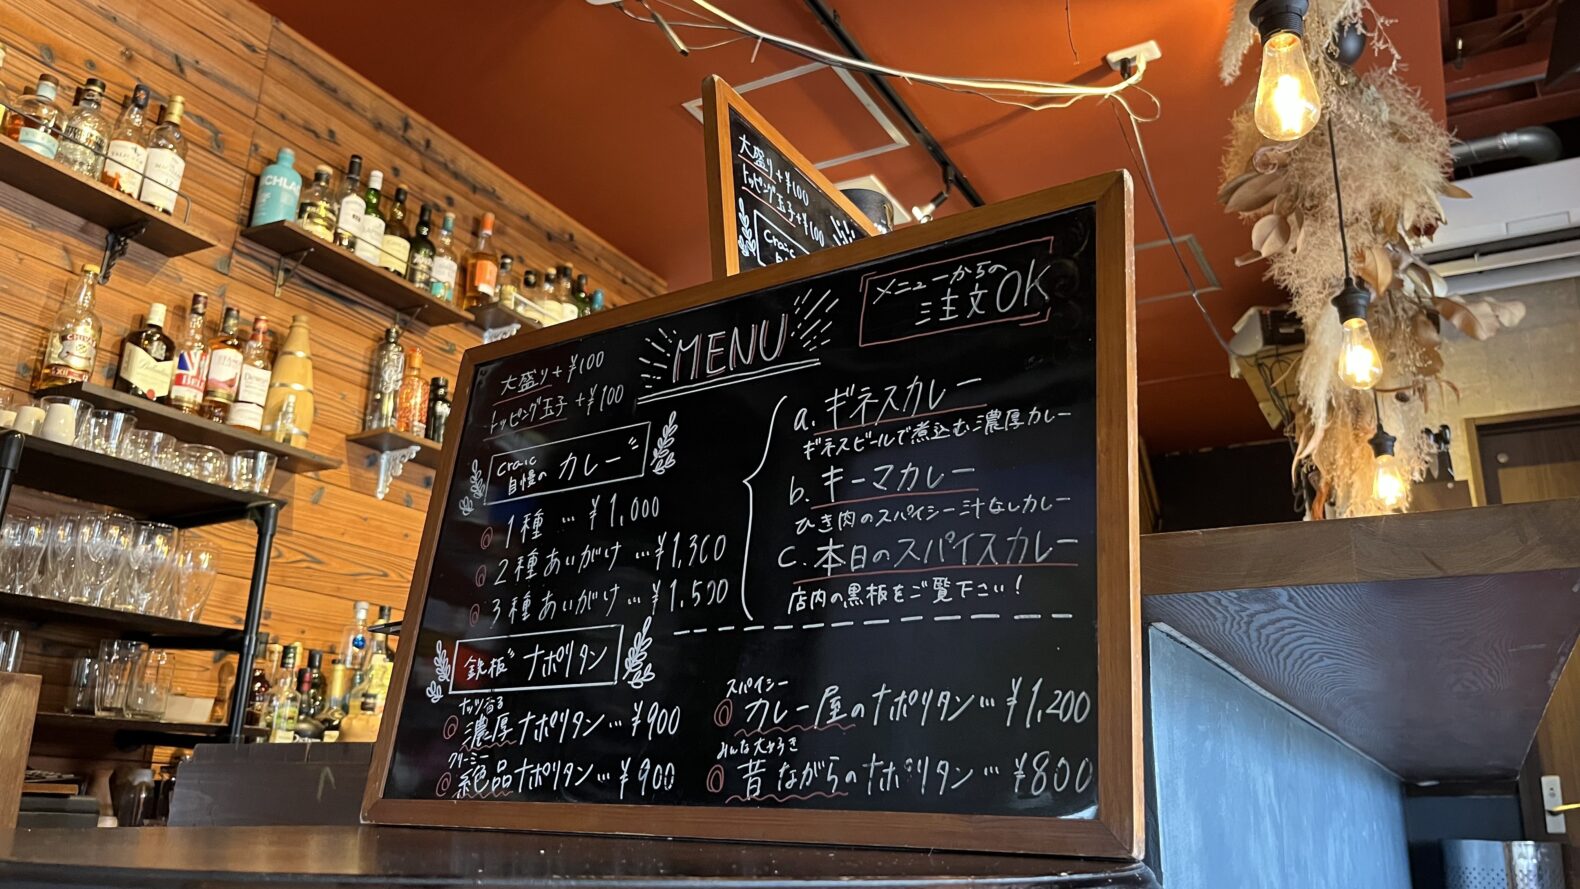 大盛り+¥100
トッピング玉子+¥100
craic
MENU
メニューからの
注文OK
大盛り+¥100
トッピング玉子 +¥100
craic
自慢の カレー
1種…¥1,000
2種あいがけ…¥1,300
3種あいがけ…¥1,500
a.ギネスカレー
ギネスビールで煮込む濃厚カレー
b.キーマカレー
ひき肉のスパイシー汁なしカレー
C.本日のスパイスカレー
店内の黒板をご覧下さい!
鉄板 ナポリタン
ナッツ香る
濃厚ナポリタン…¥900
クリーミー
絶品ナポリタン…¥900
スパイシー
カレー屋のナポリタン…¥1,200
みんな大好き
昔ながらのナポリタン…¥800